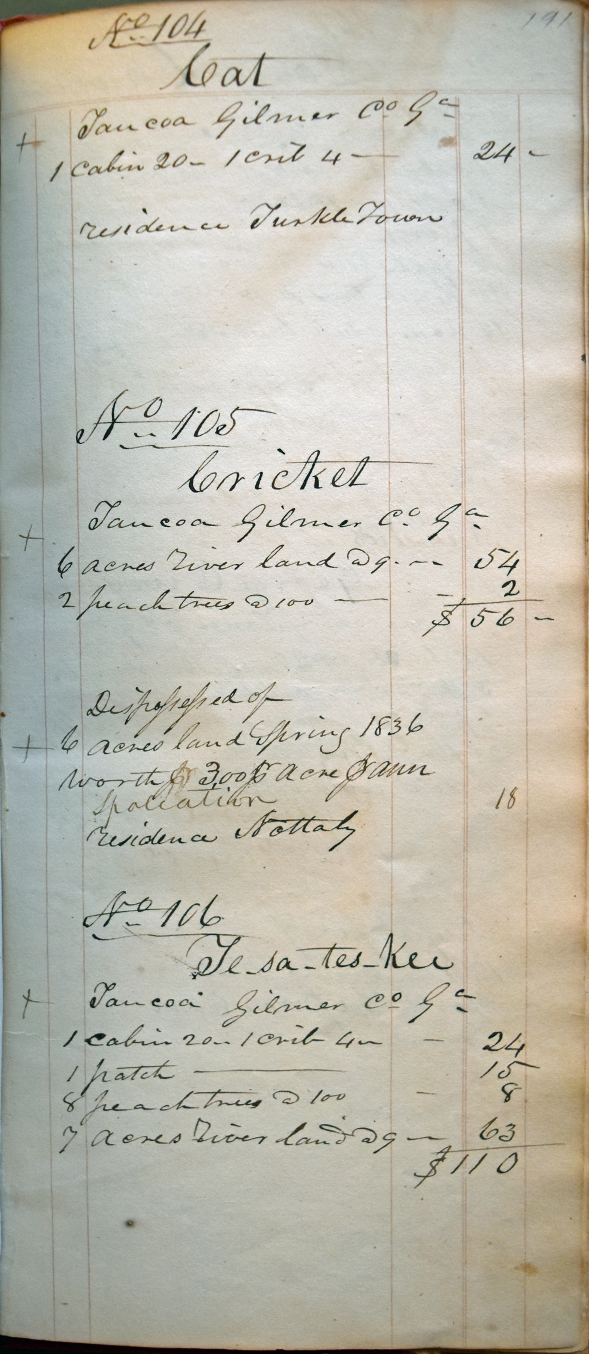 191
No 104
Cat
Taucoa Gilmer Co Ga
+
1 cabin 20 - 1 crib 4 — 24 -
residence Turkle Town
No 105
Cricket
Taucoa Gilmer Co Ga
+
6 acres River land @ 9. -- 54
2 peach trees @ 100 — - 2
$ 56 -
Dispossessed of
+ 6 acres land Spring 1836
worth $ 3.00 pr acre pr ann
Spoliation 18
residence Nottaly
No 106
Te-sa-tes-kee
+ Taucoa Gilmer Co Ga
1 cabin 20 - 1 crib 4 - - 24
1 patch — 15
8 peach trees @ 100 - 8
7 acres River land @ 9 - 63
$ 110